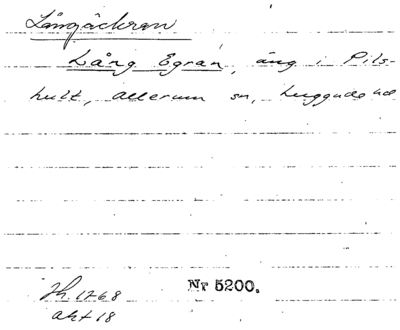 Långäckran
Lång Egran, äng i Pils-
hult, Allerum sn, Luggude hd
Hh. 1768
akt 18
Nr 5200.